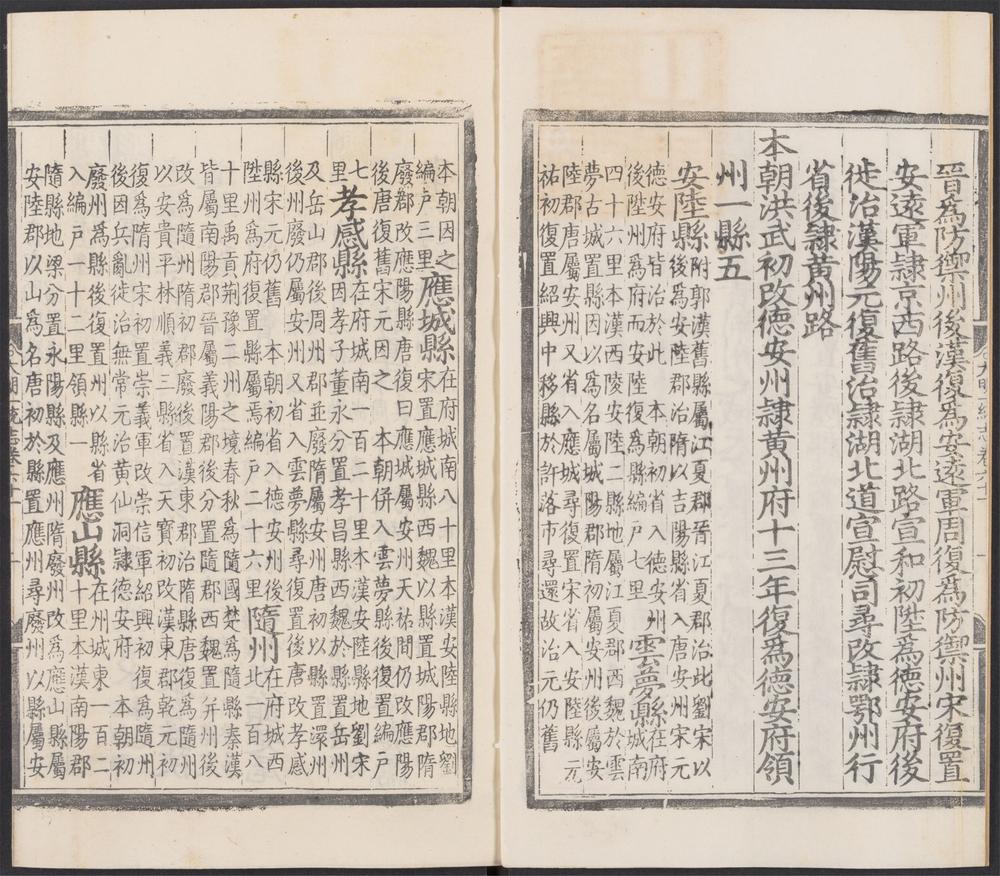 晉為防禦州後漢復為安遠軍周復為防禦州宋復置
安遠軍隷京西路後隷湖北路宣和初陞為德安府後
徙治漢陽元復舊治隷湖北道宣慰司尋改隷鄂州行
省後隷黄州路
本朝洪武初改德安州隷黄州府十三年復為德安府領
州一縣五
安陸縣附郭漢舊縣屬江夏郡晉江夏郡治此劉宋以
後為安陸郡治隋以吉陽縣省入唐安州宋元
德安府皆治於此 本朝初省入德安州
後陞州為府而安陸復為縣編户七里 雲夢縣在府
城南
四十六里本漢西陵安陸二縣地屬江夏郡西魏於雲
夢古城置縣因以為名屬城陽郡隋初屬安州後屬安
陸郡唐屬安州又省入應城尋復置宋省入安陸縣元
祐初復置紹興中移縣於許落市尋還故治元仍舊
本朝因之 應城縣在府城南八十里本漢安陸縣地劉
編户三里 宋置應城縣西魏以縣置城陽郡隋
廢郡改應陽縣唐復曰應城屬安州天祐間仍改應陽
後唐復舊宋元因之 本朝併入雲夢縣後復置編户
七里 孝感縣在府城南一百二十里本漢安陸縣地劉宋
因孝子董永分置孝昌縣西魏於縣置岳州
及岳山郡後周州郡並廢隋屬安州唐初以縣置澴州
後州廢仍屬安州又省入雲夢縣尋復置後唐改孝感
縣宋元仍舊 本朝初省入德安州後
陞州為府復置縣屬焉編户二十六里 隨州在府城西
北一百八
十里禹貢荆豫二州之境春秋為隨國楚為隨縣秦漢
皆屬南陽郡晉屬義陽郡後分置隨郡西魏置并州後
改為隨州隋初郡廢後置漢東郡治隋縣唐復為隨州
以安貴平林順義三縣省入天寶初改漢東郡乾元初
復為隋州宋初置崇義軍改崇信軍紹興初復為隨州
後因兵亂徙治無常元治黄仙洞隷德安府 本朝初
廢州為縣後復置州以縣省
入編户一十二里領縣一 應山縣在州城東一百二
十里本漢南陽郡
隨縣地梁分置永陽縣及應州隋廢州改為應山縣屬
安陸郡以山為名唐初於縣置應州尋廢州以縣屬安